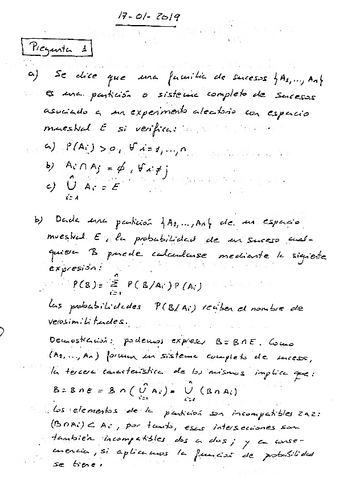 17-01-2019
Pregunta 1
a) Se dice que una familia de sucesos {A₁,..., An}
es una partición o sistema completo de sucesos
asociado a un experimento aleatorio con espacio
muestral E si verifica:
a) P(Ai) > 0, ∀ i=1,...,n
b) Ai ∩ Aj = ∅, ∀ i≠j
c) ⋃ⁿᵢ₌₁ Ai = E
b) Dada una partición {A₁,..., An} de un espacio
muestral E, la probabilidad de un suceso cual-
quiera B puede calcularse mediante la siguiente
expresión:
P(B) = Σⁿᵢ₌₁ P(B/Ai) P(Ai)
Las probabilidades P(B/Ai) reciben el nombre de
verosimilitudes.
Demostración: podemos expresar B = B∩E. Como
(A₁,..., An) forman un sistema completo de sucesos,
la tercera característica de los mismos implica que:
B = B∩E = B∩(⋃ⁿᵢ₌₁ Ai) = ⋃ⁿᵢ₌₁ (B∩Ai)
Los elementos de la partición son incompatibles 2a2:
(B∩Ai) ⊂ Ai, por tanto, esas intersecciones son
también incompatibles dos a dos; y en conse-
cuencia, si aplicamos la función de probabilidad
se tiene: